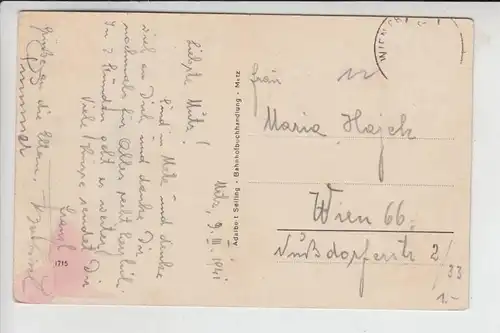 Metz, 9. III. 1941
Liebste Mutz!
Sind in Metz und denke
viel an Dich und danke Dir
nochmals für Alles recht herzlich.
In 7 Stunden geht es weiter.
Viele Küsse sendet Dir
Franzl
Grüsse an die Eltern,
1715
Adalbert Seifling - Bahnhofbuchhandlung - Metz
Wien
Frau
Maria Hajek
Wien 66.
Nußdorferstr 2/
33